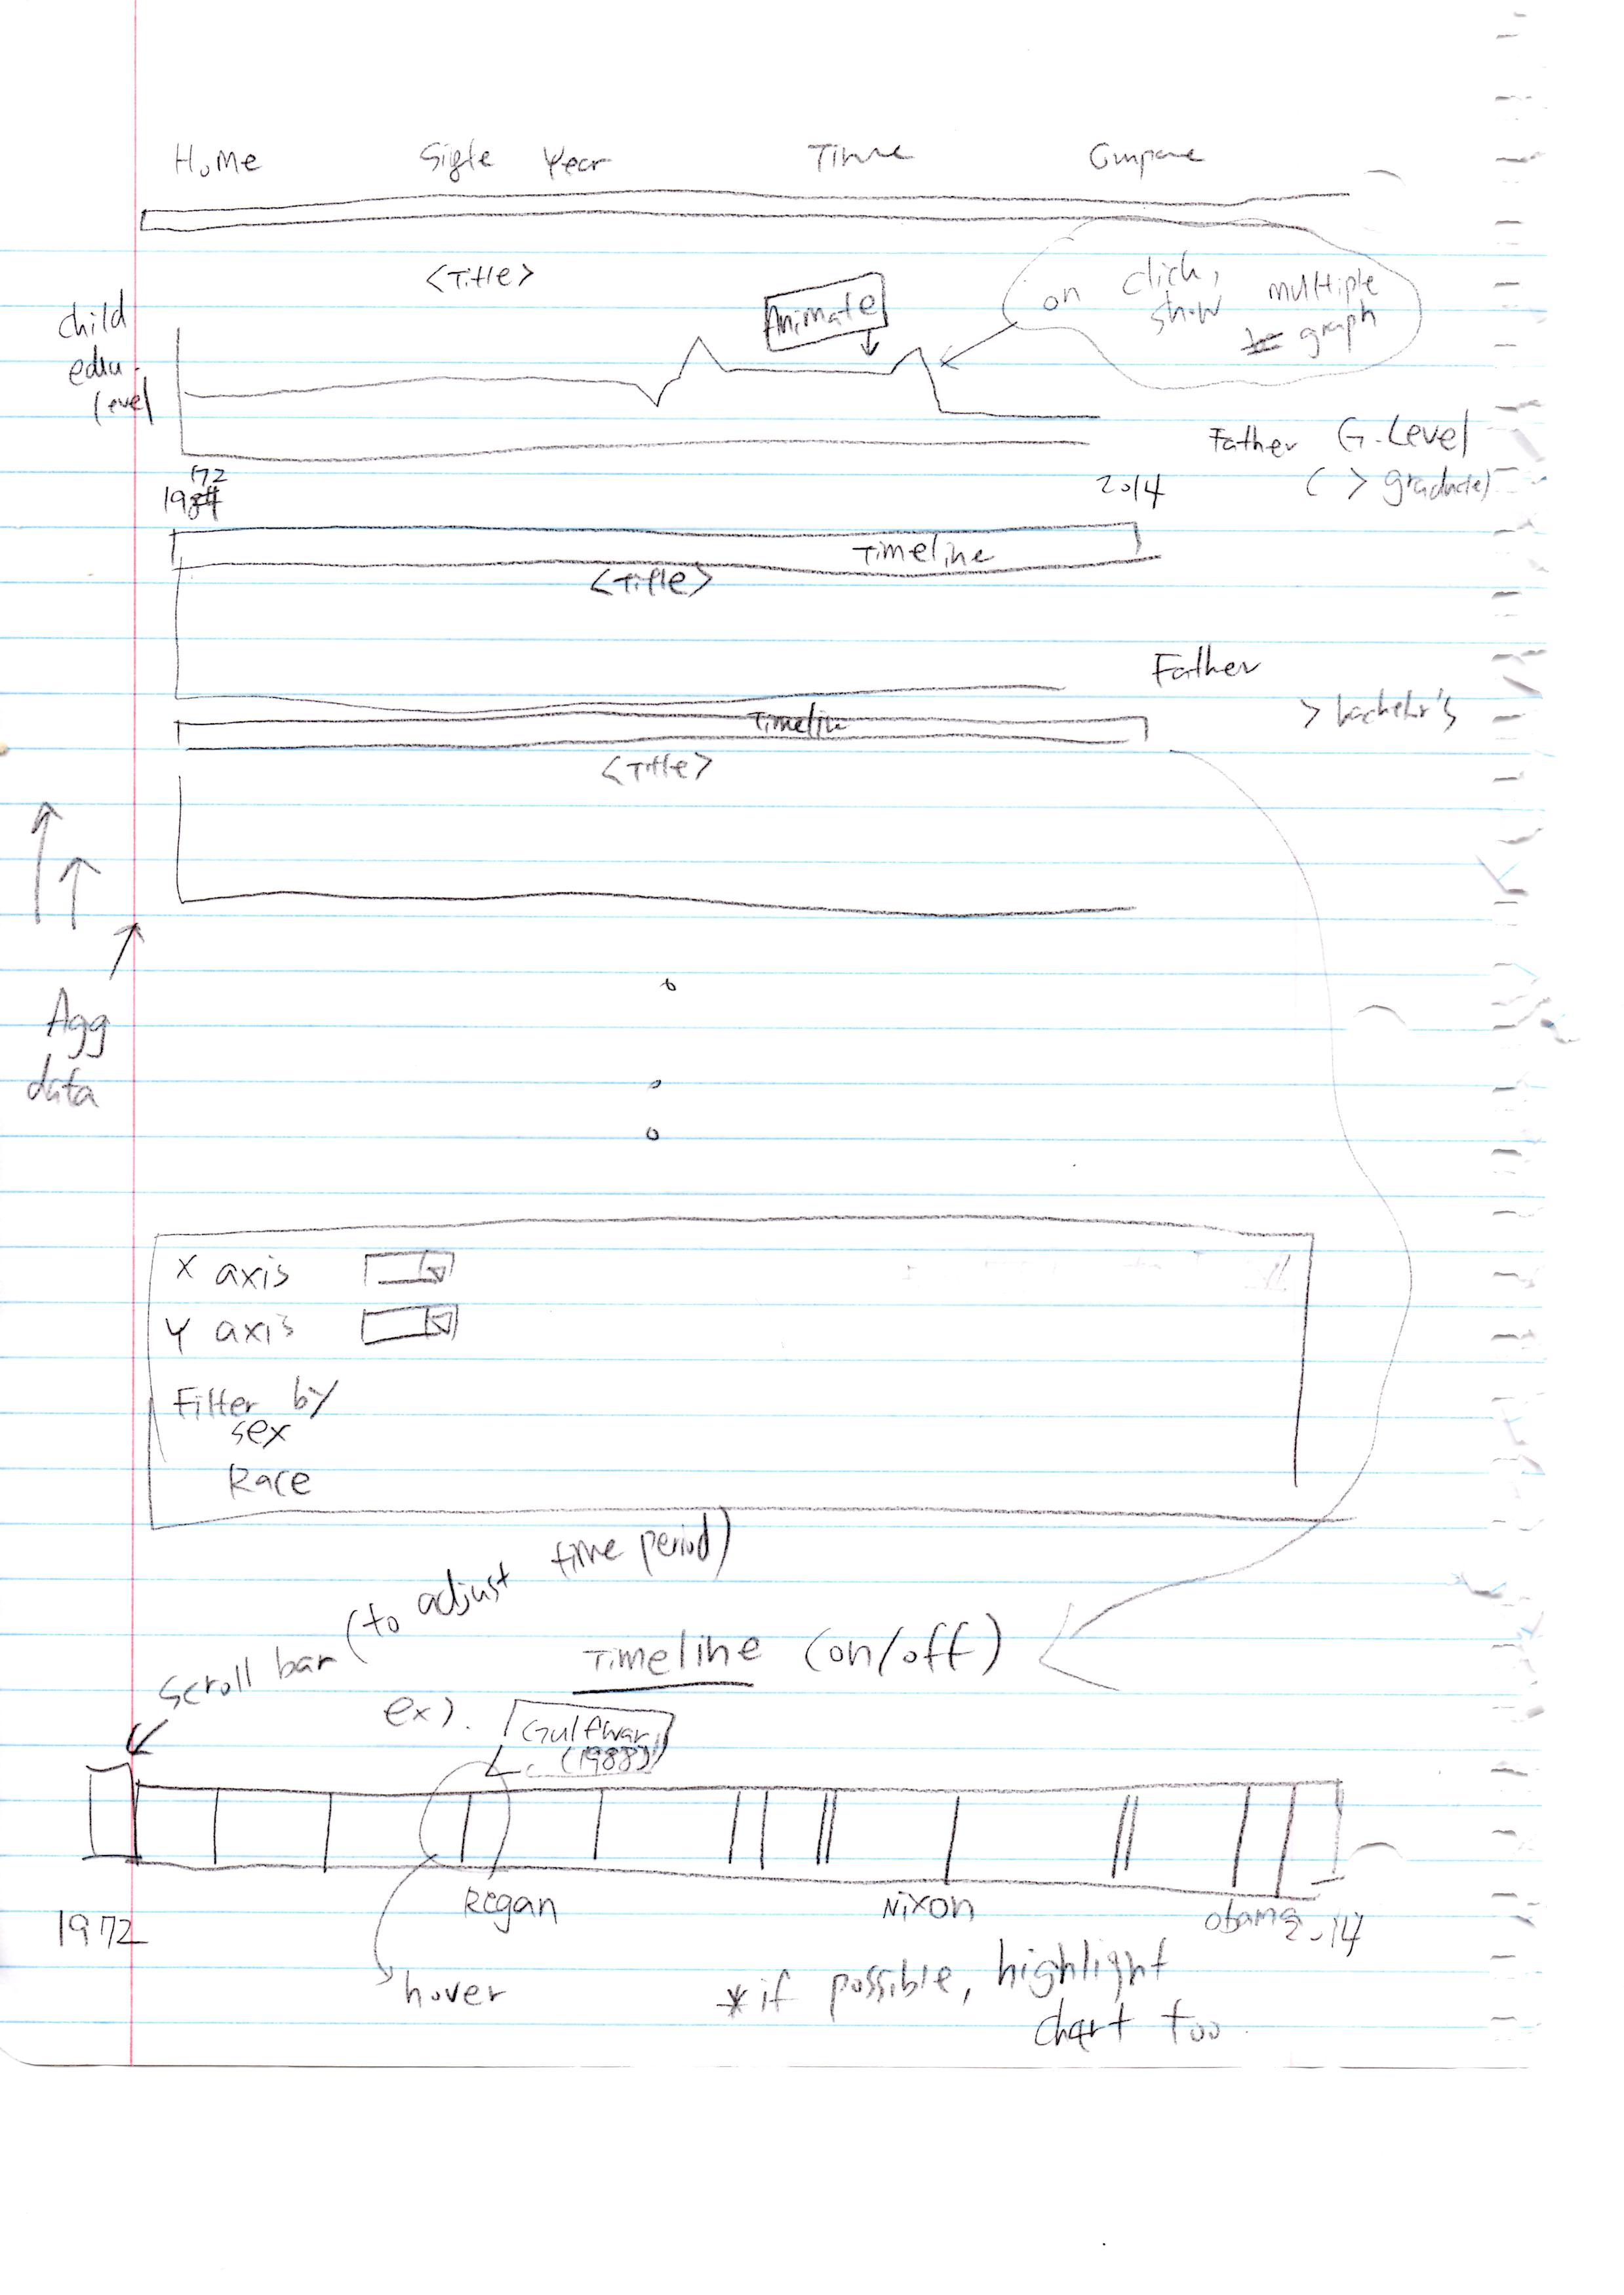 Home Sigle Year Time Compare
<Title>
Animate
on click,
show multiple
graph
child
edu.
level
Father G.Level
( > graduate)
'72
1984
2014
Timeline
<Title>
Father
> bachelor's
Timelin
<Title>
Agg
data
X axis
Y axis
Filter by
sex
Race
scroll bar (to adjust time period)
Timeline (on/off)
ex).
Gulf war
(1988)
Regan Nixon Obama
1972 2014
hover
*if possible, highlight
chart too